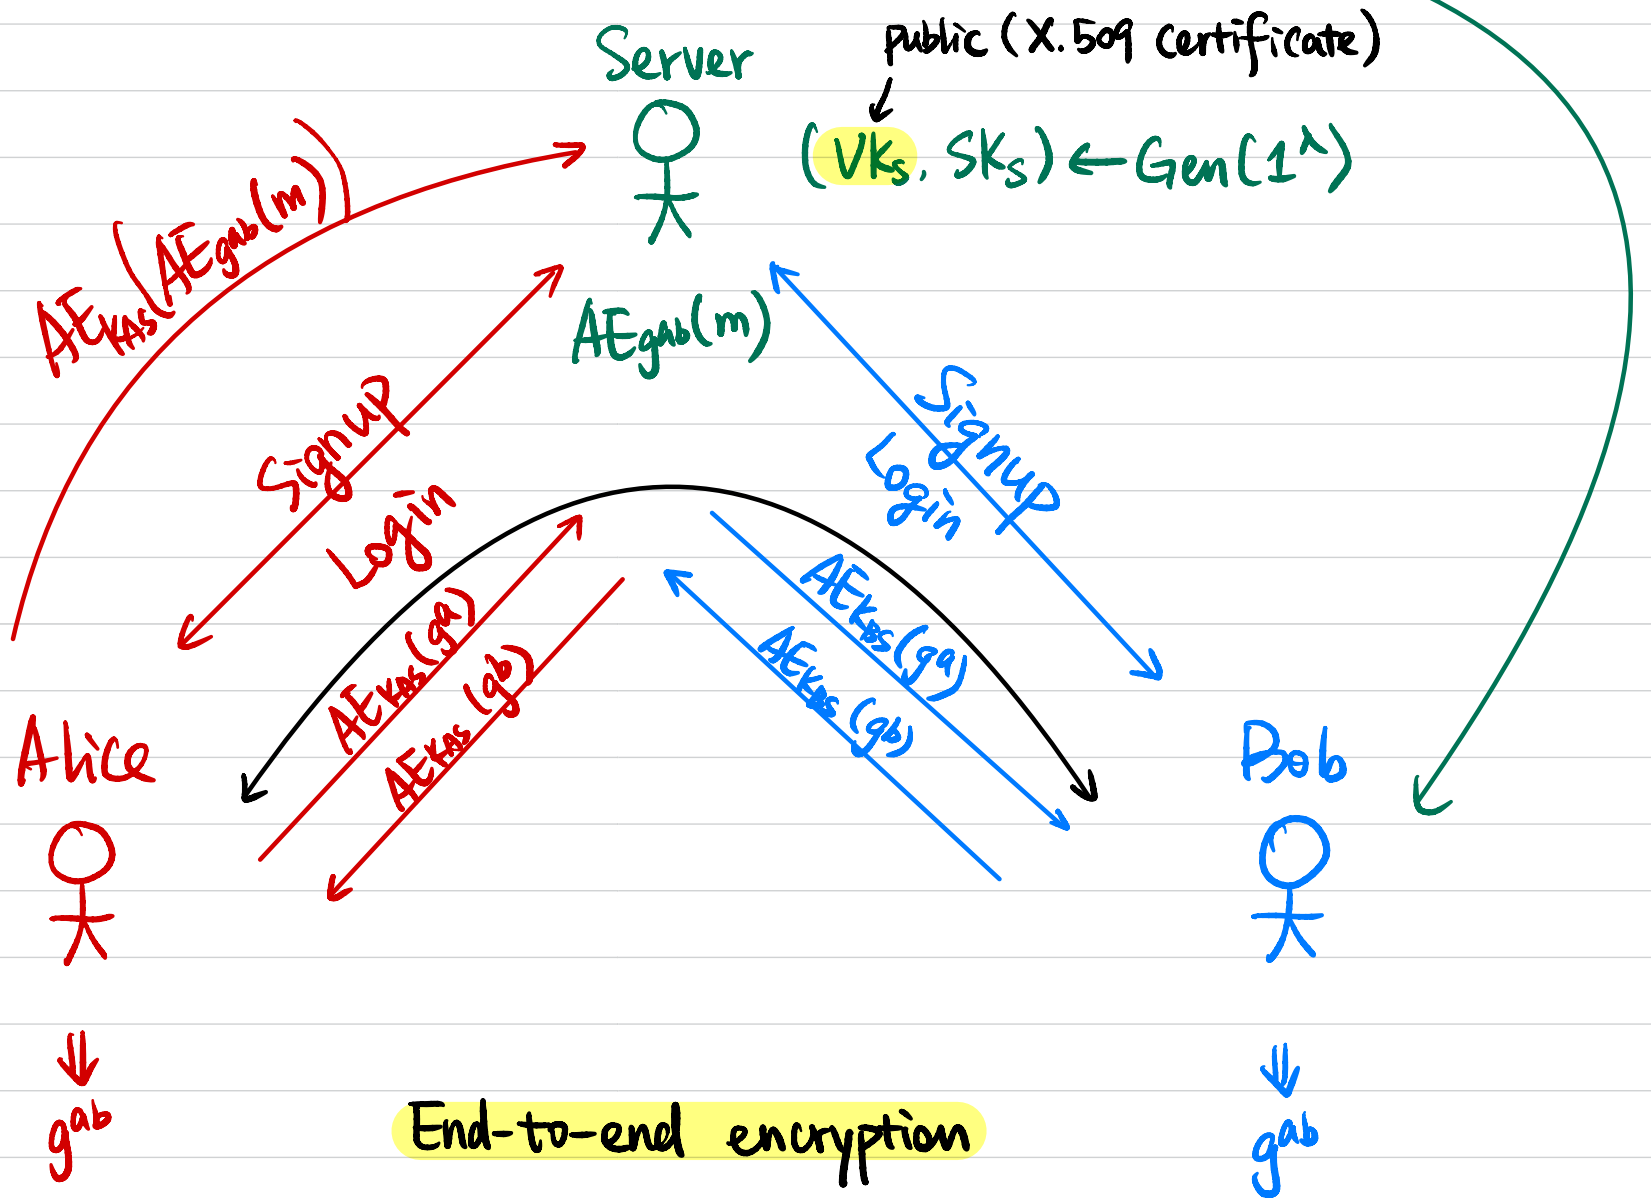 public (X.509 certificate)
Server
(VKₛ, SKₛ) ← Gen(1^λ)
AE_KAS(AE_g^ab(m))
AE_g^ab(m)
Signup
Login
Signup
Login
AE_KAS(g^a)
AE_KAS(g^b)
AE_KBS(g^a)
AE_KBS(g^b)
Alice
Bob
⇓
g^ab
⇓
g^ab
End-to-end encryption